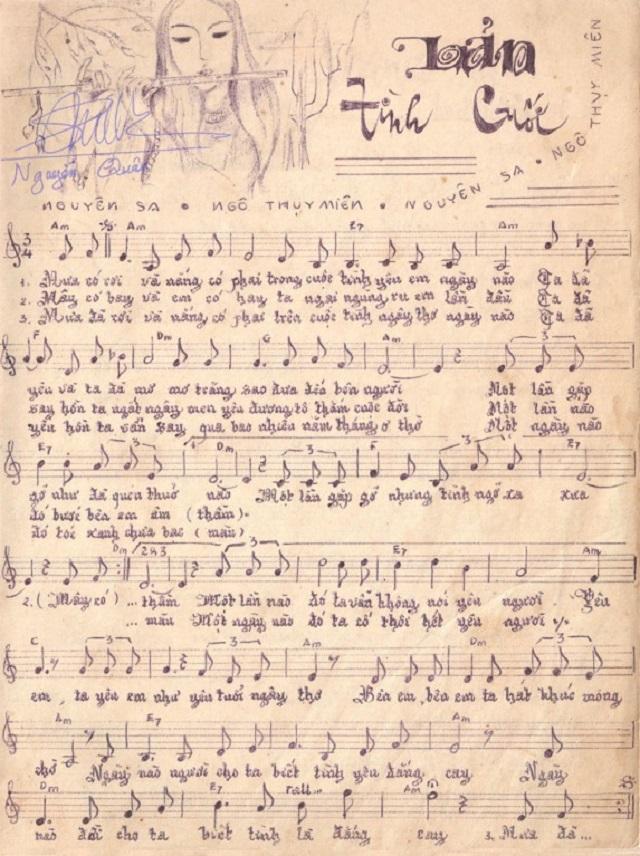 Bản
Tình Cuối
Nguyễn Quân
NGUYÊN SA • NGÔ THỤY MIÊN • NGUYÊN SA • NGÔ THỤY MIÊN
Am Am E7 Am
3/4
1. Mưa có rơi và nắng có phai trong cuộc tình yêu em ngày nào Ta đã
2. Mây có bay và em có hay ta ngại ngùng ru em lần đầu Ta đã
3. Mưa đã rơi và nắng có phai trên cuộc tình ngây thơ ngày nào Ta đã
F Dm G Am
yêu và ta đã mơ mơ trăng sao đưa đến bên người Một lần gặp
say hồn ta ngất ngây men yêu đương tô thắm cuộc đời Một lần nào
yêu hồn ta vẫn say qua bao nhiêu năm tháng ơ thờ Một ngày nào
E7 Dm F E7
gỡ như đã quen thuở nào Một lần gặp gỡ nhưng tình ngỡ xa xưa
đó bước bên em âm (thầm).
đó tóc xanh chưa bạc (màu)
Dm 2 & 3 E7 Am
2. (Mây có) ... thầm Một lần nào đó ta vẫn không nói yêu người. Yêu
... màu Một ngày nào đó ta có thôi hết yêu người
C Am Dm
em, ta yêu em như yêu tuổi ngây thơ Bên em, bên em ta hát khúc mong
Am E7 Am
chờ Ngày nào người cho ta biết tình yêu đắng cay Ngày
Dm E7 rall... Am
nào đời cho ta biết tình là đắng cay 3. Mưa đã ...